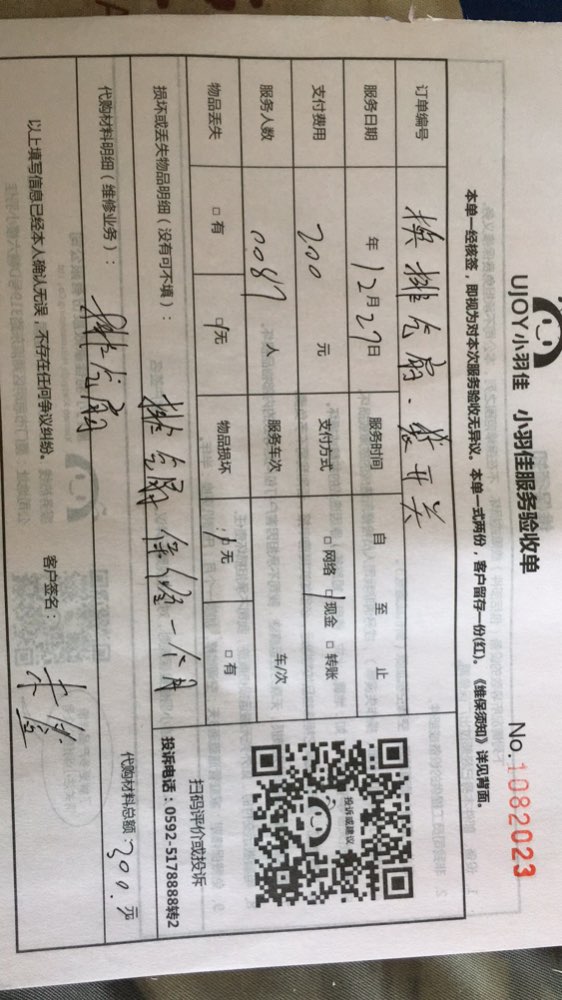 UJOY小羽佳 小羽佳服务验收单
No.1082023
本单一经核签，即视为对本次服务验收无异议。本单一式两份，客户留存一份(红)。《维保须知》详见背面。
订单编号 换排气扇、装开关
服务日期 年12月27日 服务时间 自 至 止
支付费用 200 元 支付方式 □网络 □现金 □转账
服务人数 0087 人 服务车次 车/次
物品丢失 □有 □无 物品损坏 □无 □有
投诉或建议
扫码评价或投诉
投诉电话：0592-5178888转2
损坏或丢失物品明细（没有可不填）： 排气扇 保修一个月
代购材料明细（维修业务）： 排气扇
代购材料总额：200.元
以上填写信息已经本人确认无误，不存在任何争议纠纷。 客户签名：